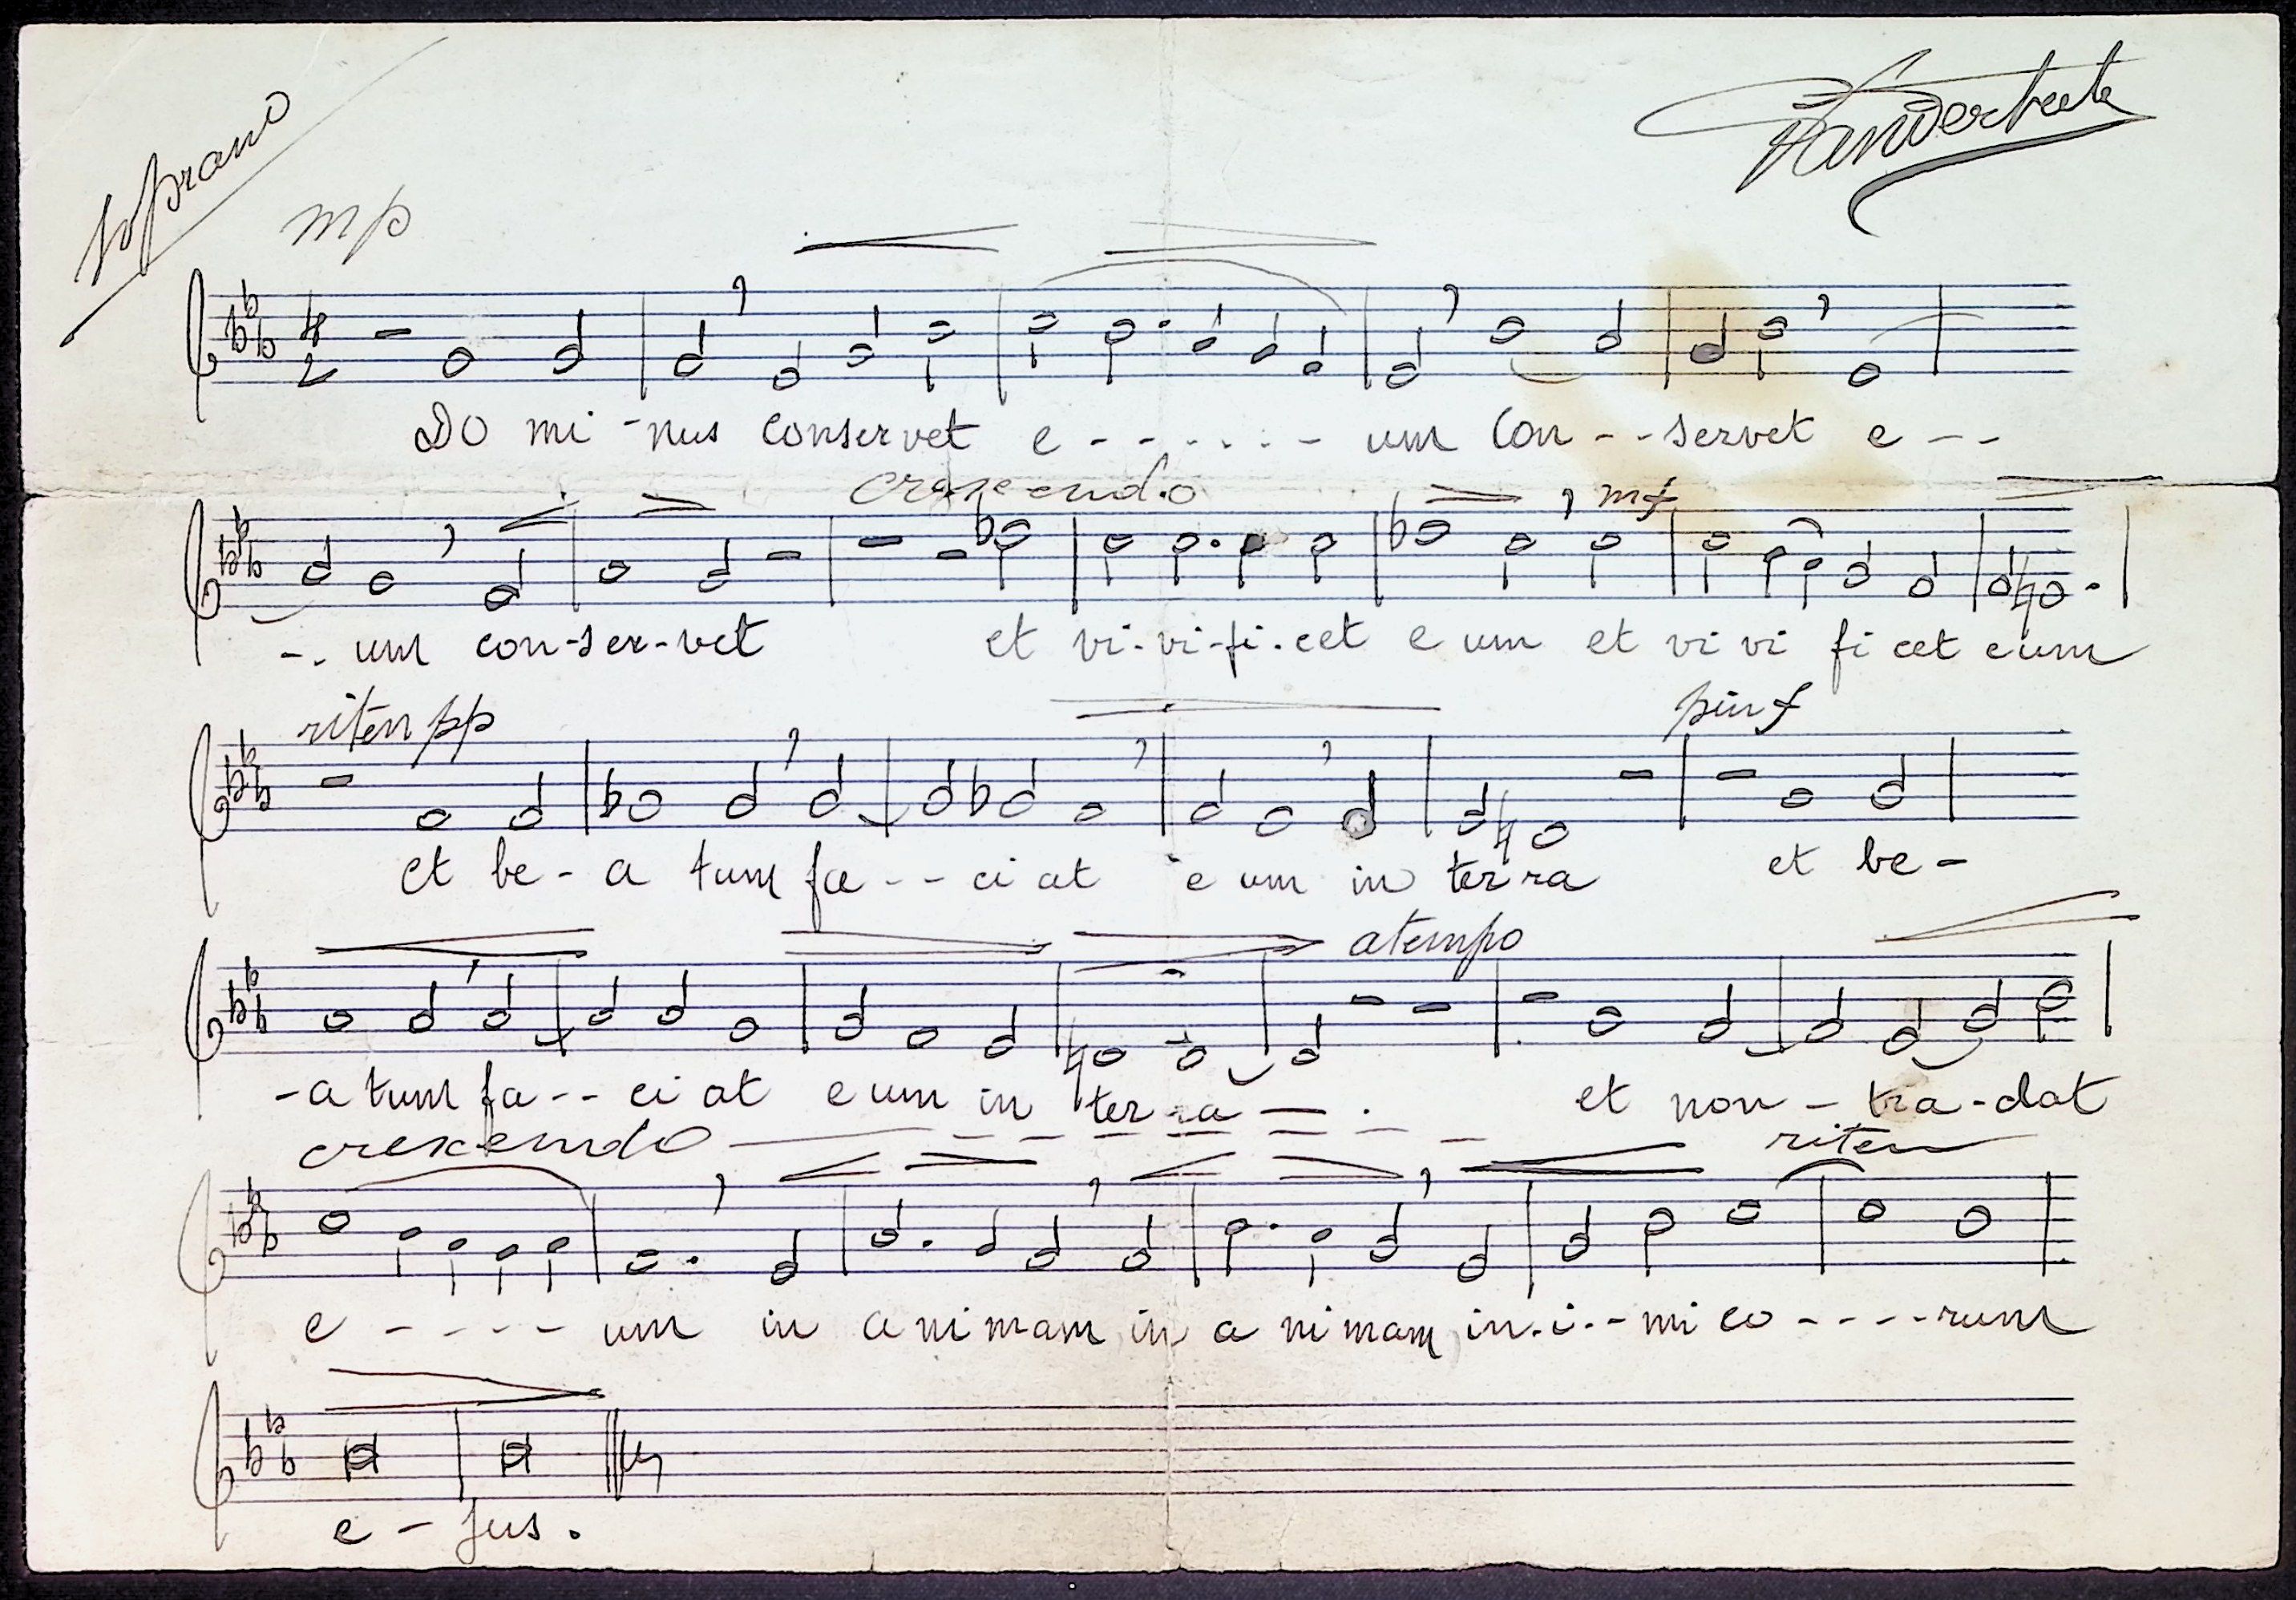 Soprano
mp
4
2
Do mi -nus conservet e - - - - - - um Con - - servet e - -
crescendo mf
- - um con-ser-vet et vi-vi-fi-cet e um et vi vi fi cet eum
riten pp piu f
et be - a tum fa - - ci at e um in ter ra et be -
a tempo
- a tum fa - - ci at e um in ter - ra - . et non - tra - dat
crescendo - - - - - - - riten
e - - - - um in a ni mam in a ni mam in - i - - mi co - - - - rum
e - jus .